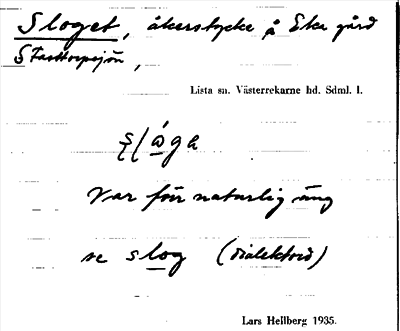 Sloget, åkerstycke å Eke gård
S Fasttorpsjön,
Lista sn. Västerrekarne hd. Sdml. l.
Var förr naturlig äng
se slog (dialektord)
Lars Hellberg 1935.